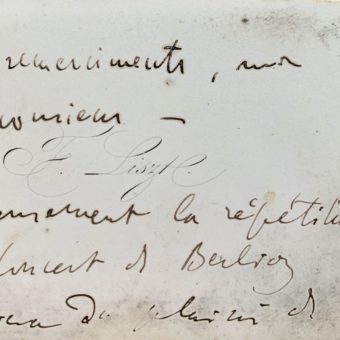 remerciments, mon
monsieur —
F. Liszt.
la répétiti
Concert de Berlioz
du plaisir de